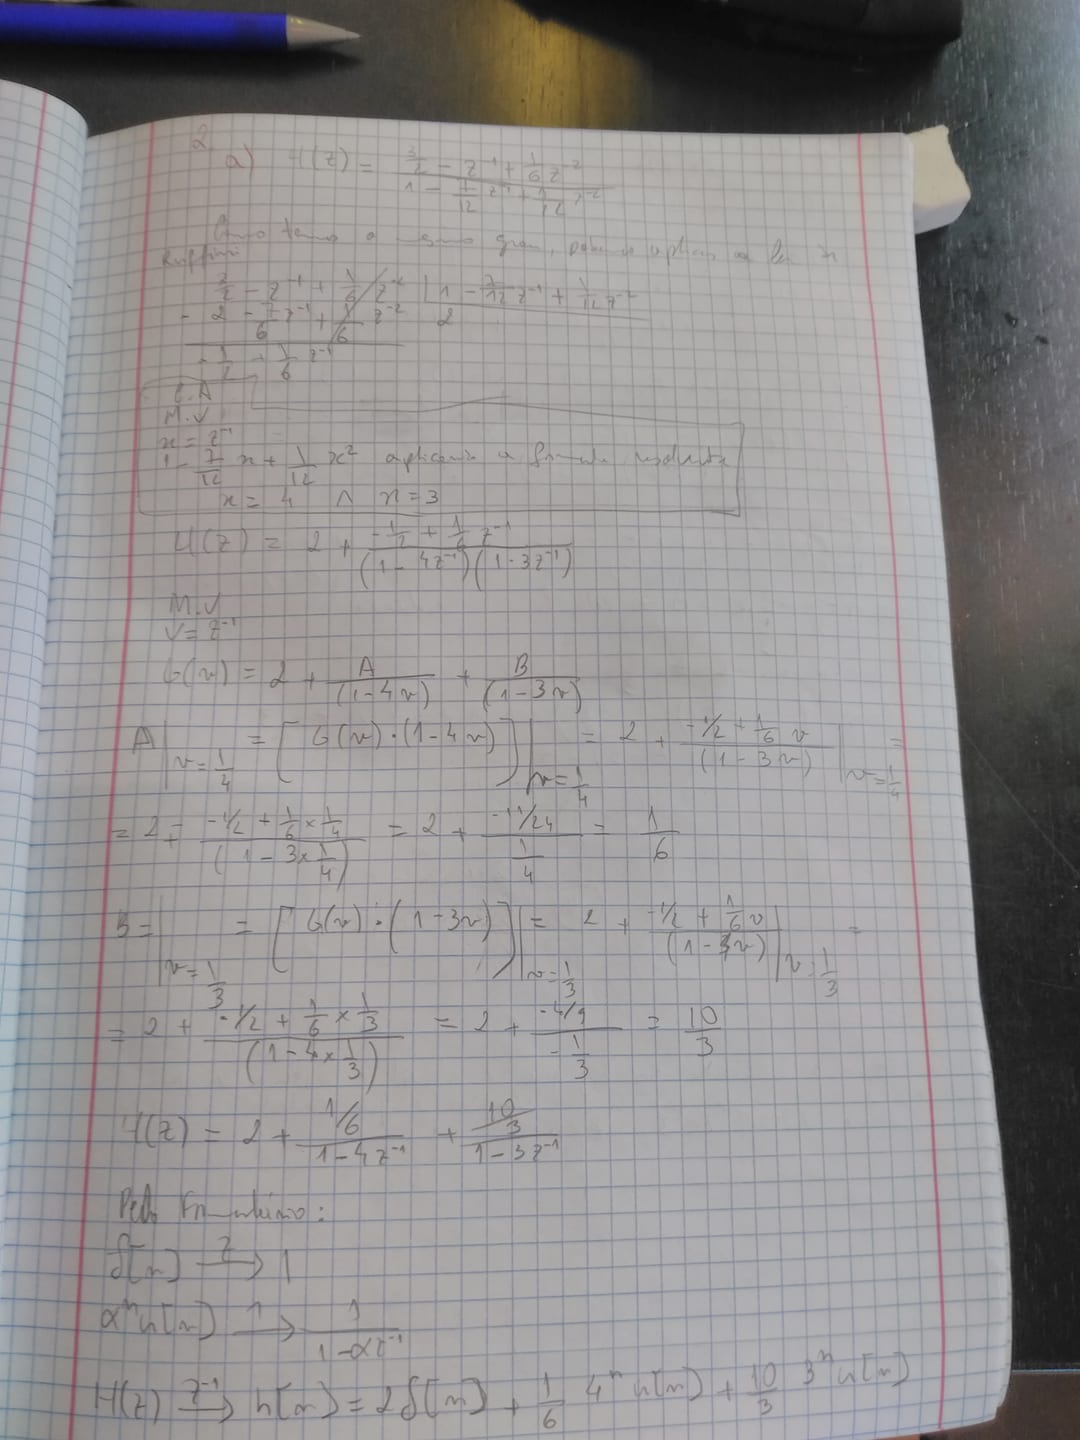 2
a) H(z) = (3/2 - z^-1 + 1/6 z^-2) / (1 - 7/12 z^-1 + 1/12 z^-2)
Como temos o mesmo grau, aplicar a
Ruffini
3/2 - z^-1 + 1/6 z^-2 | 1 - 7/12 z^-1 + 1/12 z^-2
- 2 - 7/6 z^-1 + 1/6 z^-2 2
- 1/2 + 1/6 z^-1
C.A
M.V
x = z^-1
1 - 7/12 x + 1/12 x^2 a fórmula resolvente
x = 4 ∧ x = 3
H(z) = 2 + (-1/2 + 1/6 z^-1) / ((1 - 4z^-1)(1 - 3z^-1))
M.V
V = z^-1
G(v) = 2 + A/(1-4v) + B/(1-3v)
A|v=1/4 = [G(v)·(1-4v)]|v=1/4 = 2 + (-1/2 + 1/6 v)/(1-3v)|v=1/4 =
= 2 + (-1/2 + 1/6 × 1/4)/(1 - 3×1/4) = 2 + (-11/24)/(1/4) = 1/6
B=|v=1/3 = [G(v)·(1-3v)]|v=1/3 = 2 + (-1/2 + 1/6 v)/(1-4v)|v=1/3 =
= 2 + (-1/2 + 1/6 × 1/3)/(1 - 4×1/3) = 2 + (-4/9)/(-1/3) = 10/3
H(z) = 2 + (1/6)/(1-4z^-1) + (10/3)/(1-3z^-1)
Pelo Formulário:
δ[n] Z→ 1
α^n u[n] → 1/(1-αz^-1)
H(z) Z^-1→ h[n] = 2δ[n] + 1/6 4^n u[n] + 10/3 3^n u[n]